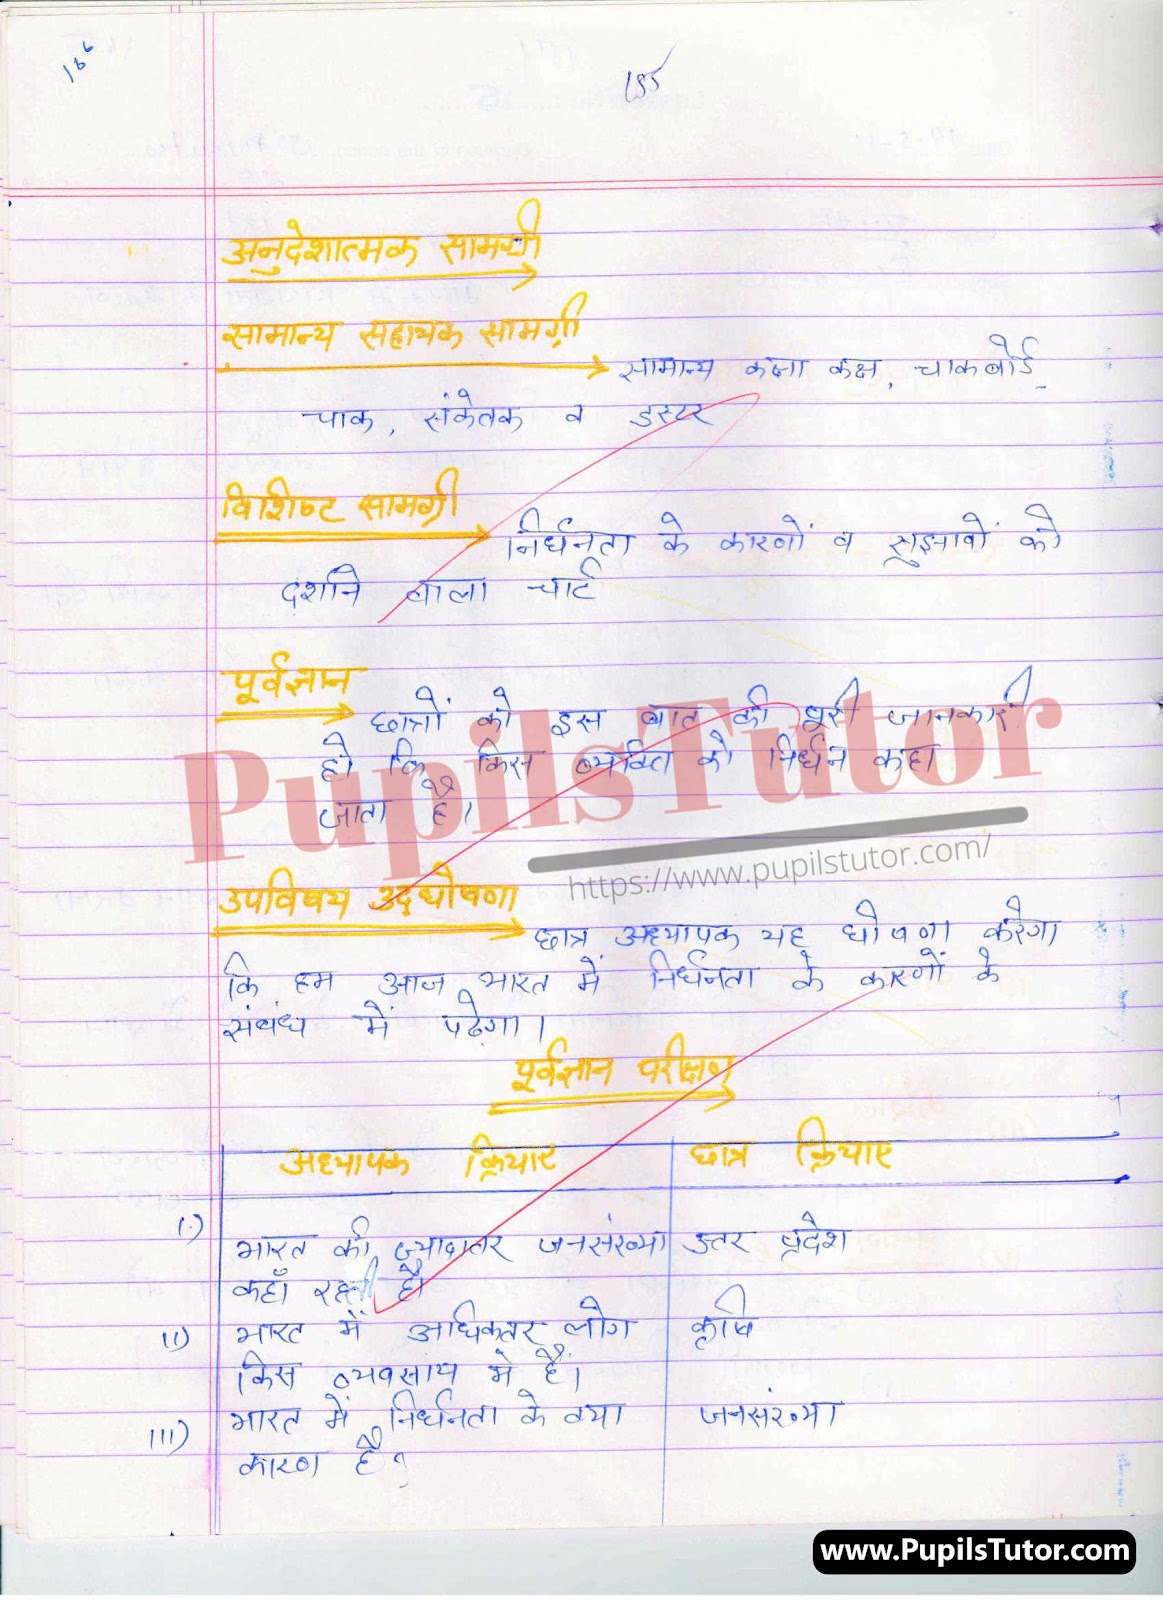 166
155
अनुदेशात्मक सामग्री
सामान्य सहायक सामग्री
सामान्य कक्षा कक्ष, चाकबोर्ड
चाक, संकेतक व डस्टर
विशिष्ट सामग्री
निर्धनता के कारणों व सुझावों को
दर्शाने वाला चार्ट
पूर्वज्ञान
छात्रों को इस बात की पूरी जानकारी
हो कि किस व्यक्ति को निर्धन कहा
जाता है।
PupilsTutor
https://www.pupilstutor.com/
उपविषय उद्घोषणा
छात्र अध्यापक यह घोषणा करेगा
कि हम आज भारत में निर्धनता के कारणों के
संबंध में पढेगा।
पूर्वज्ञान परीक्षण
अध्यापक क्रियाए छात्र क्रियाए
I.) भारत की ज्यादातर जनसंख्या उत्तर प्रदेश
कहाँ रहती है।
II) भारत में अधिकतर लोग कृषि
किस व्यवसाय मे हैं।
III) भारत में निर्धनता के क्या जनसंख्या
कारण है?
www.PupilsTutor.com